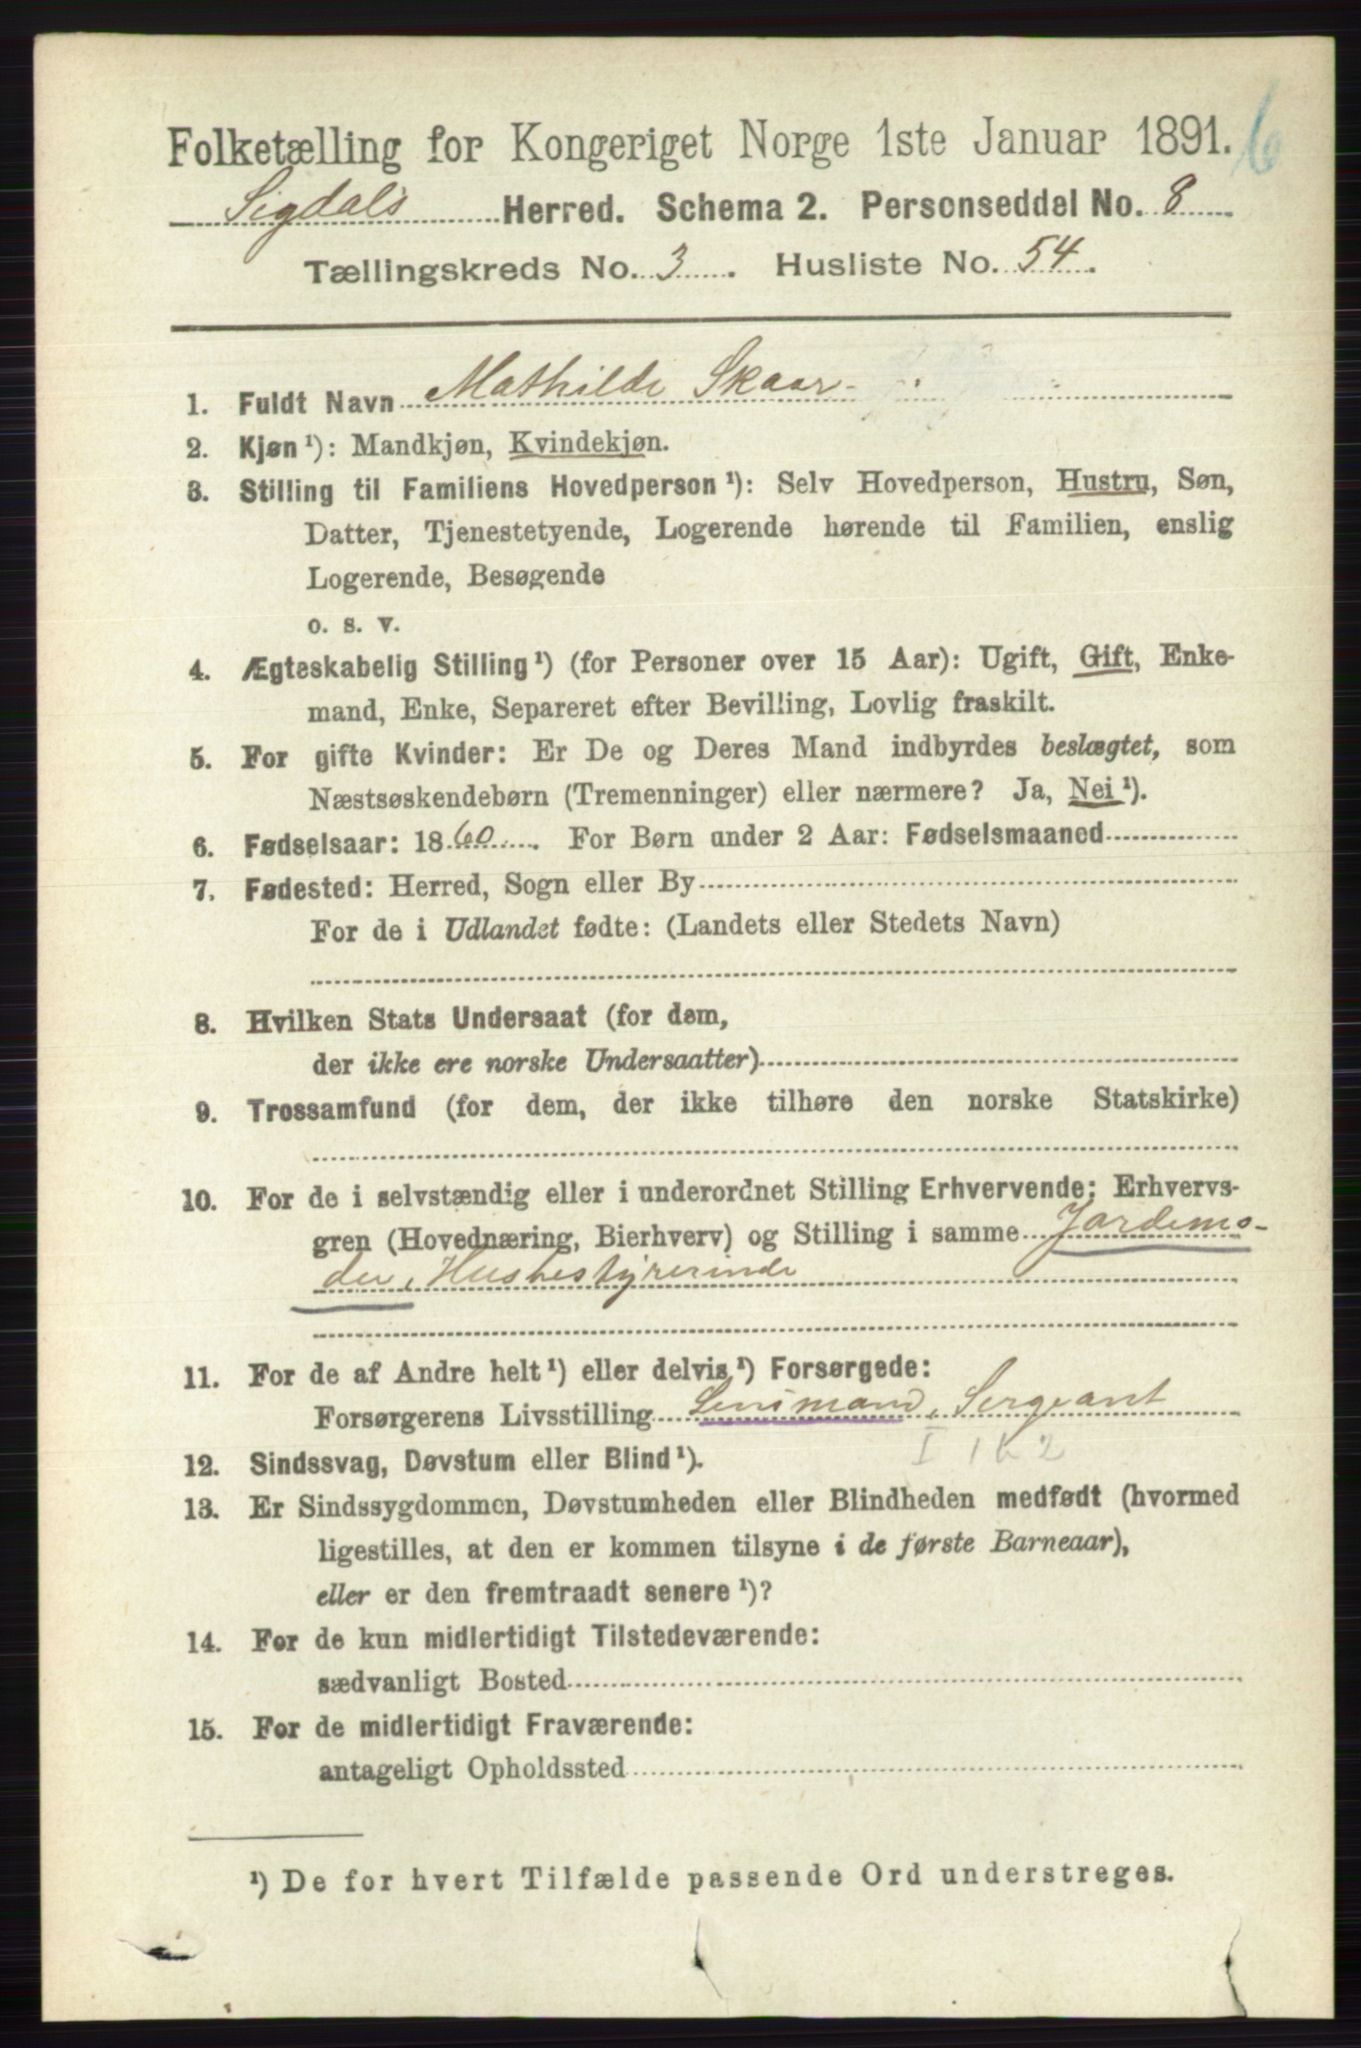 Folketælling for Kongeriget Norge 1ste Januar 1891. 6
Sigdals Herred. Schema 2. Personseddel No. 8
Tællingskreds No. 3. Husliste No. 54.
1. Fuldt Navn Mathilde Skaar
2. Kjøn ¹): Mandkjøn, Kvindekjøn.
3. Stilling til Familiens Hovedperson ¹): Selv Hovedperson, Hustru, Søn,
Datter, Tjenestetyende, Logerende hørende til Familien, enslig
Logerende, Besøgende
o. s. v.
4. Ægteskabelig Stilling ¹) (for Personer over 15 Aar): Ugift, Gift, Enke-
mand, Enke, Separeret efter Bevilling, Lovlig fraskilt.
5. For gifte Kvinder: Er De og Deres Mand indbyrdes beslægtet, som
Næstsøskendebørn (Tremenninger) eller nærmere? Ja, Nei ¹).
6. Fødselsaar: 1860. For Børn under 2 Aar: Fødselsmaaned
7. Fødested: Herred, Sogn eller By
For de i Udlandet fødte: (Landets eller Stedets Navn)
8. Hvilken Stats Undersaat (for dem,
der ikke ere norske Undersaatter)
9. Trossamfund (for dem, der ikke tilhøre den norske Statskirke)
10. For de i selvstændig eller i underordnet Stilling Erhvervende: Erhvervs-
gren (Hovednæring, Bierhverv) og Stilling i samme Jordemo-
der, Husbestyrerinde
11. For de af Andre helt ¹) eller delvis ¹) Forsørgede:
Forsørgerens Livsstilling Lensmand, Sergeant
I 1 k 2
12. Sindssvag, Døvstum eller Blind ¹).
13. Er Sindssygdommen, Døvstumheden eller Blindheden medfødt (hvormed
ligestilles, at den er kommen tilsyne i de første Barneaar),
eller er den fremtraadt senere ¹)?
14. For de kun midlertidigt Tilstedeværende:
sædvanligt Bosted
15. For de midlertidigt Fraværende:
antageligt Opholdssted
¹) De for hvert Tilfælde passende Ord understreges.